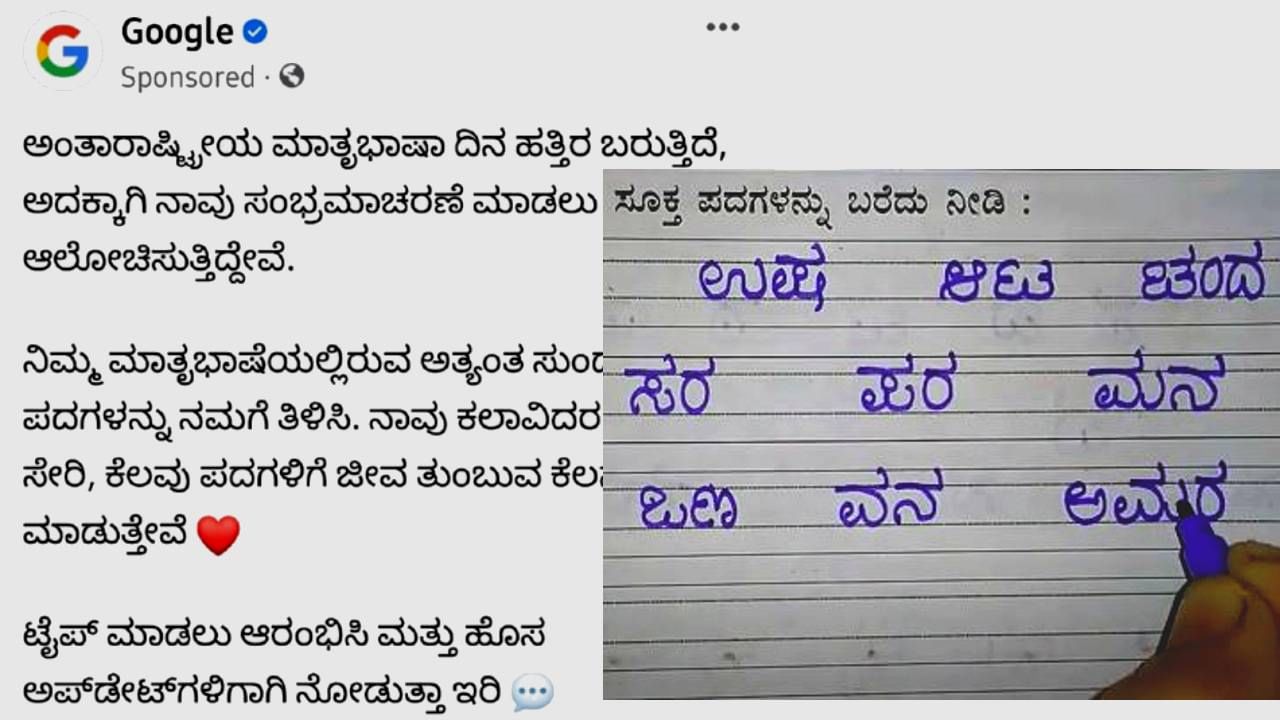 Google
Sponsored ·
ಅಂತಾರಾಷ್ಟ್ರೀಯ ಮಾತೃಭಾಷಾ ದಿನ ಹತ್ತಿರ ಬರುತ್ತಿದೆ,
ಅದಕ್ಕಾಗಿ ನಾವು ಸಂಭ್ರಮಾಚರಣೆ ಮಾಡಲು
ಆಲೋಚಿಸುತ್ತಿದ್ದೇವೆ.
ನಿಮ್ಮ ಮಾತೃಭಾಷೆಯಲ್ಲಿರುವ ಅತ್ಯಂತ
ಪದಗಳನ್ನು ನಮಗೆ ತಿಳಿಸಿ. ನಾವು ಕಲಾವಿದರ
ಸೇರಿ, ಕೆಲವು ಪದಗಳಿಗೆ ಜೀವ ತುಂಬುವ
ಮಾಡುತ್ತೇವೆ ❤️
ಟೈಪ್ ಮಾಡಲು ಆರಂಭಿಸಿ ಮತ್ತು ಹೊಸ
ಅಪ್‌ಡೇಟ್‌ಗಳಿಗಾಗಿ ನೋಡುತ್ತಾ ಇರಿ 💬
ಸೂಕ್ತ ಪದಗಳನ್ನು ಬರೆದು ನೀಡಿ :
ಉಷ ಆಟ ಚಂದ
ಸರ ಪರ ಮನ
ಒಣ ವನ ಅಮರ